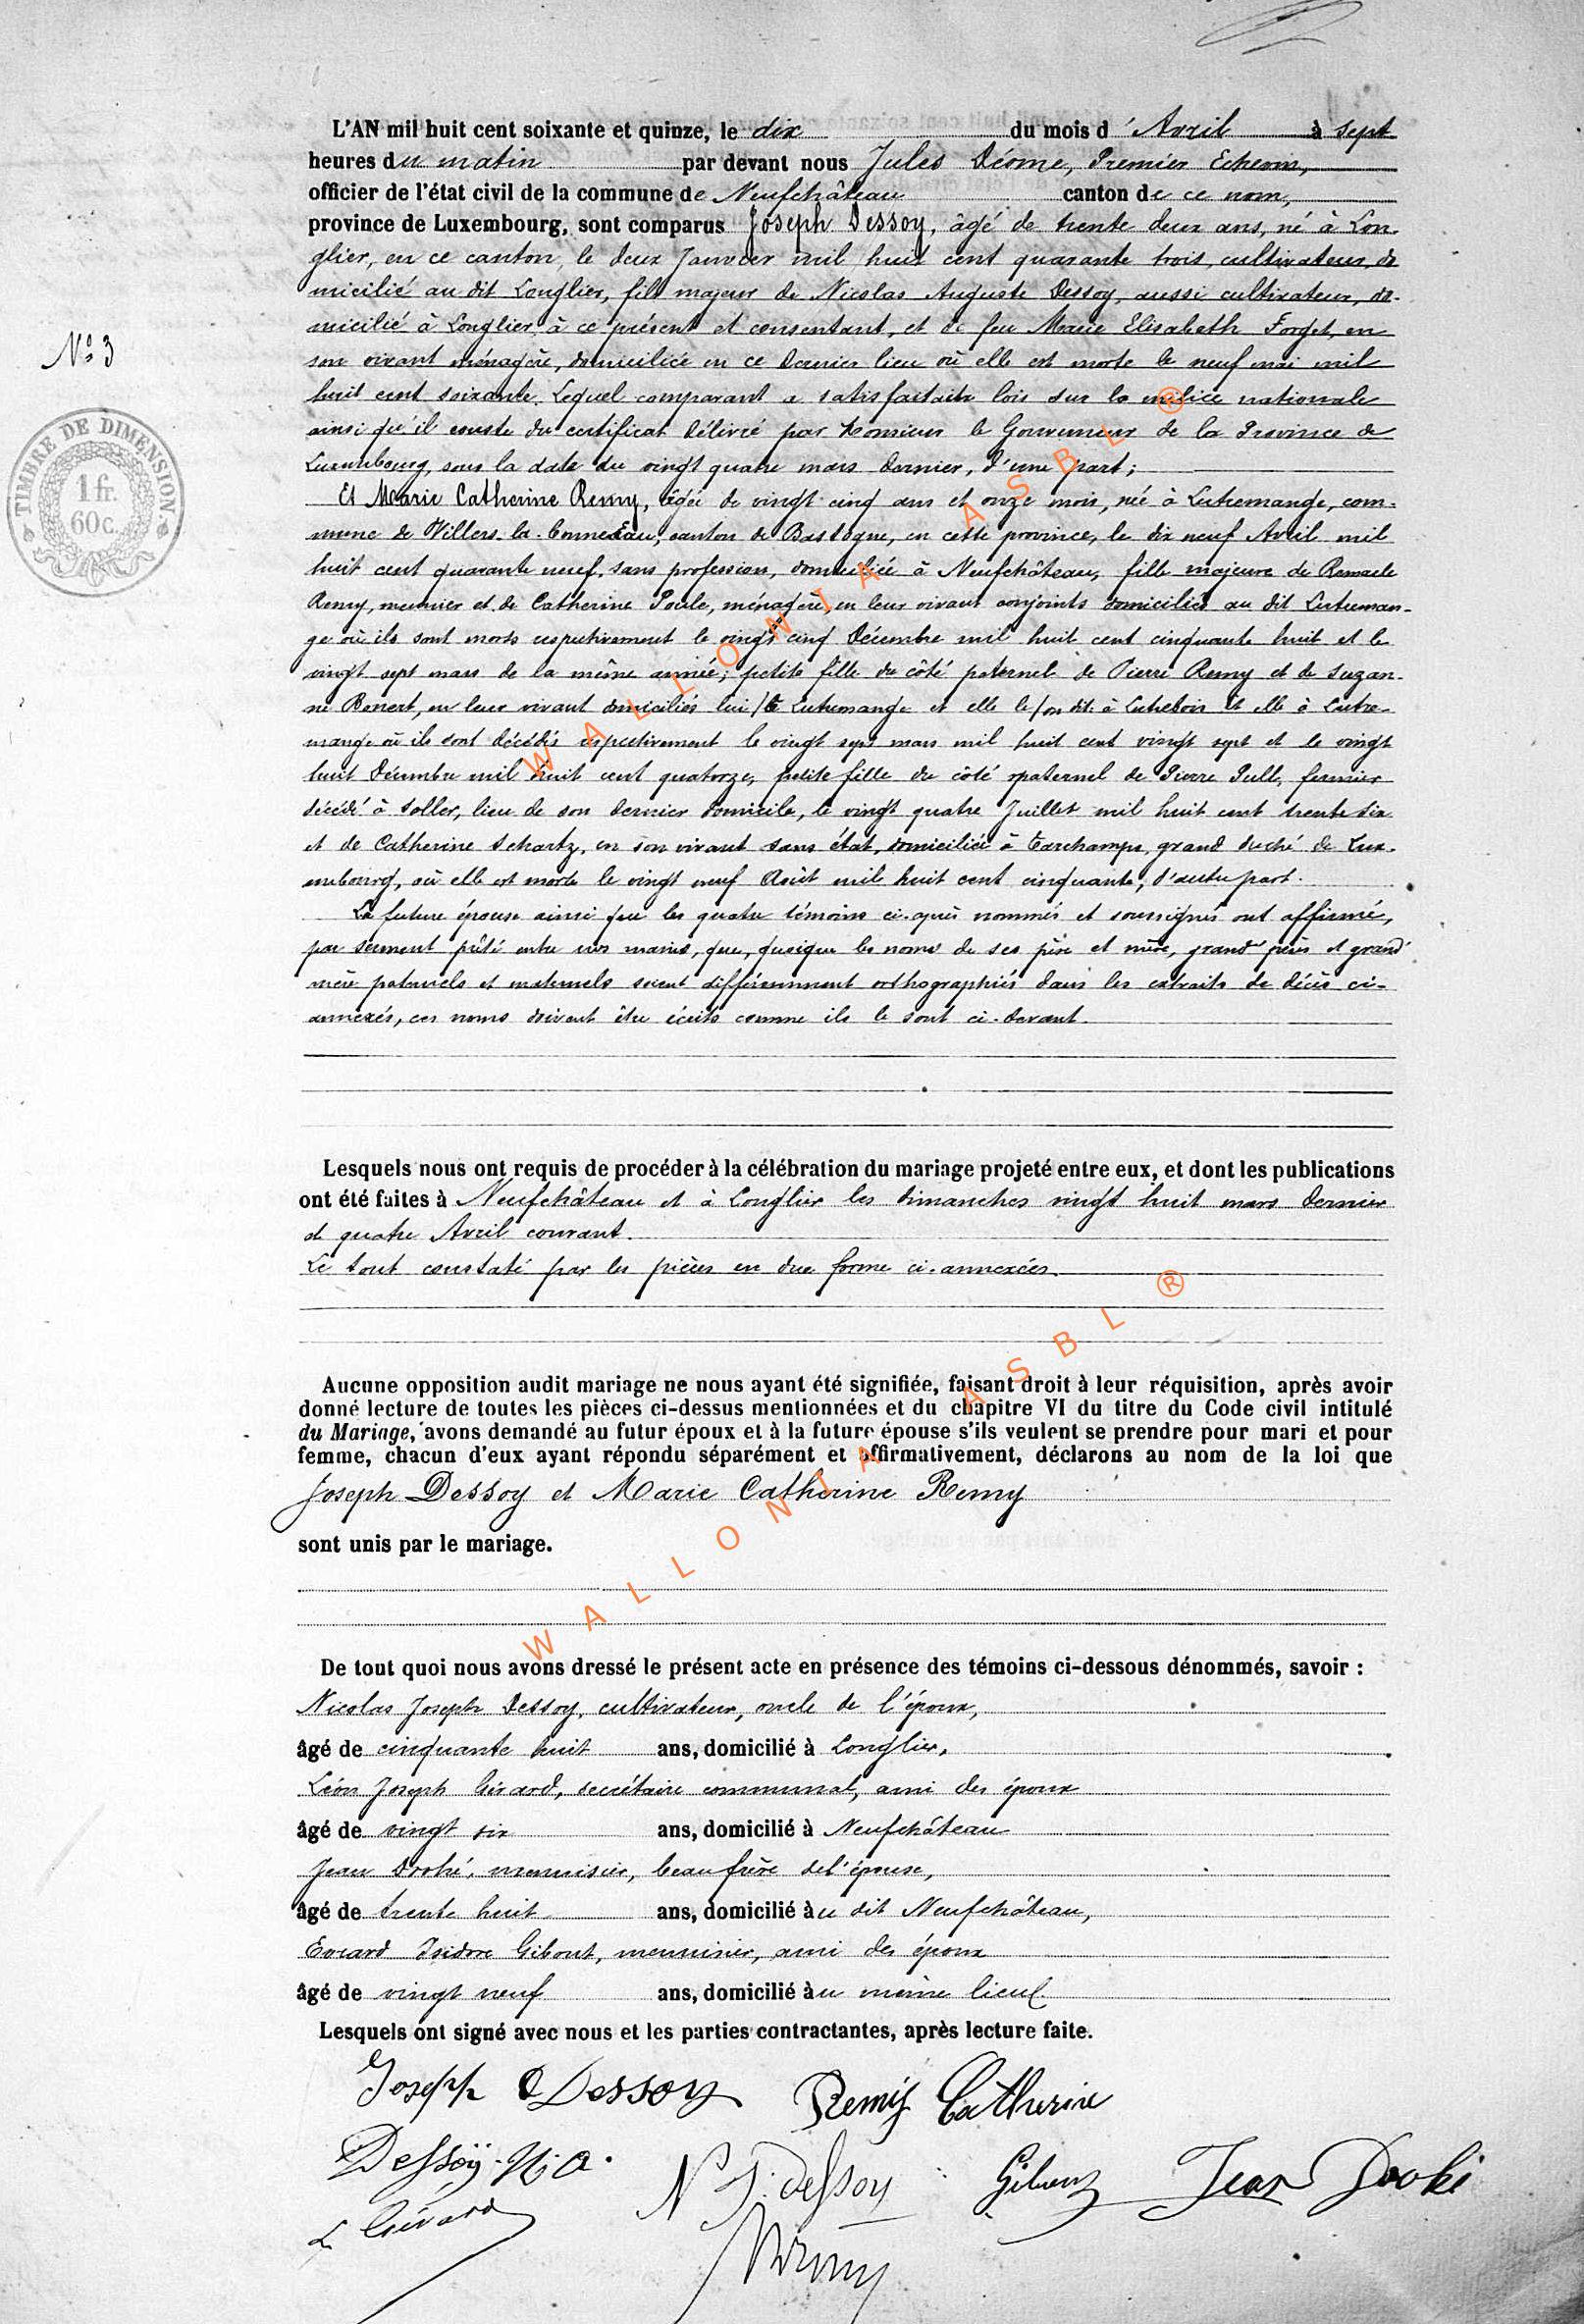 L'AN mil huit cent soixante et quinze, le dix du mois d'Avril à sept
heures du matin par devant nous Jules Déome, Premier Echevin,
officier de l'état civil de la commune de Neufchâteau canton de ce nom,
province de Luxembourg, sont comparus Joseph Dessoy, âgé de trente deux ans, né à Lon-
glier, en ce canton, le deux Janvier mil huit cent quarante trois, cultivateur, do
micilié au dit Longlier, fils majeur de Nicolas Auguste Dessoy, aussi cultivateur, do-
micilié à Longlier, à ce présent et consentant, et de feu Marie Elisabeth Forget, en
N° 3
son vivant ménagère, domiciliée en ce dernier lieu où elle est morte le neuf mai mil
huit cent soixante. Lequel comparant a satisfait aux lois sur la milice nationale
ainsi qu'il conste du certificat délivré par Monsieur le Gouverneur de la Province de
Luxembourg, sous la date du vingt quatre mars dernier, d'une part;
TIMBRE DE DIMENSION
1 fr.
60 c.
Et Marie Catherine Remy, âgée de vingt cinq ans et onze mois, née à Lutremange, com-
mune de Villers-la-bonne-Eau, canton de Bastogne, en cette province, le dix neuf Avril mil
huit cent quarante neuf, sans profession, domiciliée à Neufchâteau, fille majeure de Remacle
Remy, meunier et de Catherine Poule, ménagère, en leur vivant conjoints domiciliés au dit Lutreman-
ge où ils sont morts respectivement le vingt cinq Décembre mil huit cent cinquante huit et le
vingt sept mars de la même année; petite fille du côté paternel de Pierre Remy et de Suzan-
ne Benert, en leur vivant domiciliés lui à Lutremange et elle à Lutrebois et elle à Lutre-
mange où ils sont décédés respectivement le vingt sept mars mil huit cent vingt sept et le vingt
huit Décembre mil huit cent quatorze, petite fille du côté maternel de Pierre Pull, fermier
décédé à Soller, lieu de son dernier domicile, le vingt quatre Juillet mil huit cent trente six
et de Catherine Schartz, en son vivant sans état, domiciliée à Tarchamps, grand duché de Lux-
embourg, où elle est morte le vingt neuf Août mil huit cent cinquante; d'autre part.
La future épouse ainsi que les quatre témoins ci-après nommés et soussignés ont affirmé,
par serment prêté entre nos mains, que, quoique les noms de ses père et mère, grands pères et grand'
mère paternels et maternels soient différemment orthographiés dans les extraits de décès ci-
annexés, ces noms doivent être écrits comme ils le sont ci-devant.
Lesquels nous ont requis de procéder à la célébration du mariage projeté entre eux, et dont les publications
ont été faites à Neufchâteau et à Longlier les dimanches vingt huit mars dernier
et quatre Avril courant.
Le tout constaté par les pièces en due forme ci-annexées.
Aucune opposition audit mariage ne nous ayant été signifiée, faisant droit à leur réquisition, après avoir
donné lecture de toutes les pièces ci-dessus mentionnées et du chapitre VI du titre du Code civil intitulé
du Mariage, avons demandé au futur époux et à la future épouse s'ils veulent se prendre pour mari et pour
femme, chacun d'eux ayant répondu séparément et affirmativement, déclarons au nom de la loi que
Joseph Dessoy et Marie Catherine Remy
sont unis par le mariage.
WALLONIA ASBL ®
WALLONIA ASBL ®
De tout quoi nous avons dressé le présent acte en présence des témoins ci-dessous dénommés, savoir :
Nicolas Joseph Dessoy, cultivateur, oncle de l'époux,
âgé de cinquante huit ans, domicilié à Longlier,
Léon Joseph Gérard, secrétaire communal, ami des époux
âgé de vingt six ans, domicilié à Neufchâteau
Jean Drohé, menuisier, beau frère de l'épouse,
âgé de trente huit ans, domicilié au dit Neufchâteau,
Evrard Isidore Gibout, menuisier, ami des époux
âgé de vingt neuf ans, domicilié au même lieu.
Lesquels ont signé avec nous et les parties contractantes, après lecture faite.
Joseph Dessoy Remÿ Catherine
Dessoÿ. N. A. N J. Dessoy Jean
L. Gérard